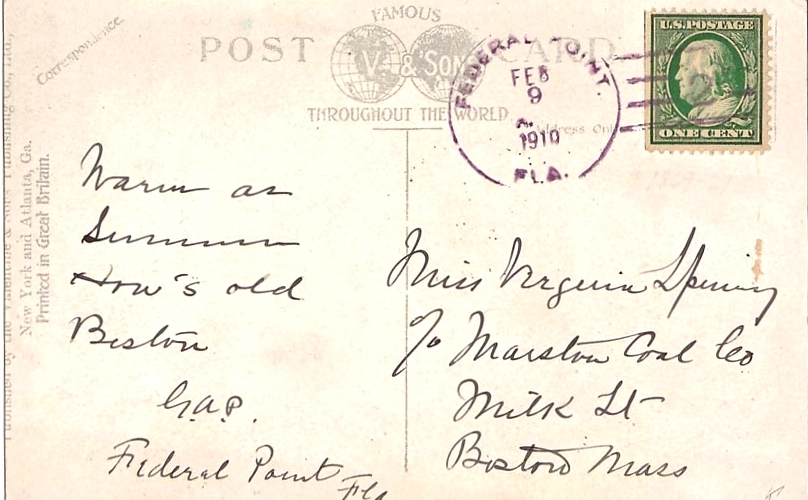 Correspondence.
POST CARD
FAMOUS
V. & SONS
THROUGHOUT THE WORLD
Address Only
FEDERAL POINT.
FEB
9
A.
1910
FLA.
U.S. POSTAGE
ONE CENT
Published by the Valentine & Sons Publishing Co., Ltd.,
New York and Atlanta, Ga.
Printed in Great Britain.
Warm as
Summer
How's old
Boston
G.A.P.
Federal Point
Fla
Miss Virginia
c/o Marston Coal Co
Milk St
Boston Mass